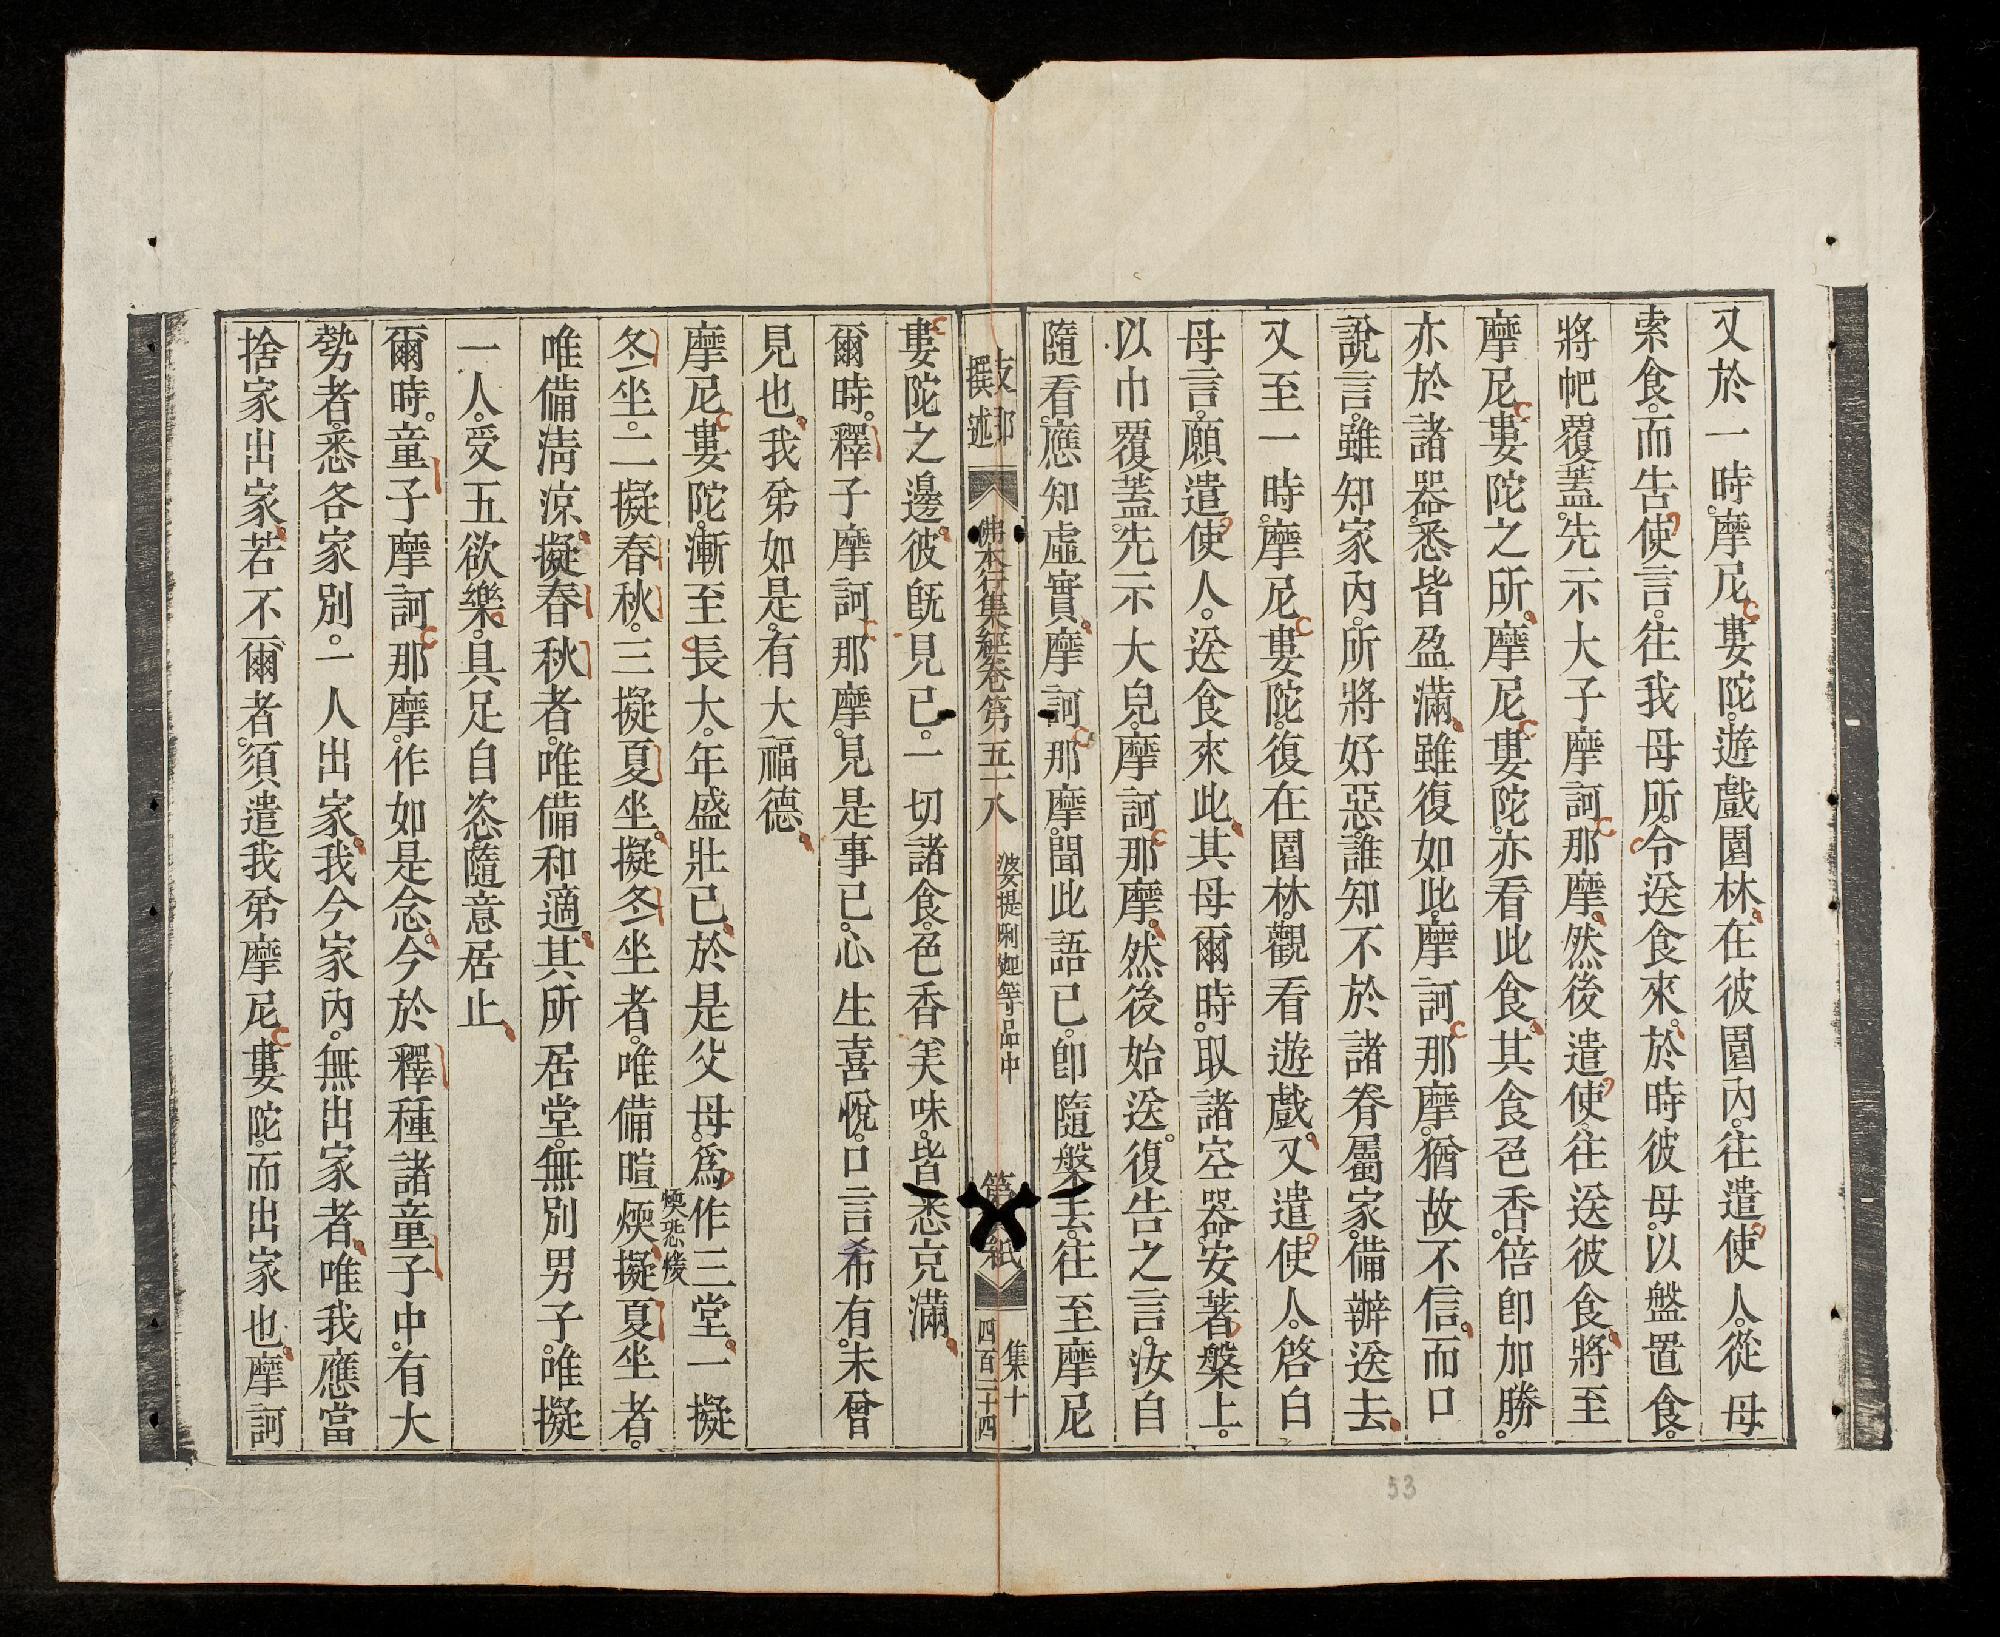 又於一時。摩尼婁陀。遊戲園林。在彼園內。往遣使人。從母
索食。而告使言。往我母所。令送食來。於時彼母。以盤置食。
將帊覆蓋。先示大子摩訶那摩。然後遣使。往送彼食。將至
摩尼婁陀之所。摩尼婁陀。亦看此食。其食色香。倍卽加勝。
亦於諸器。悉皆盈滿。雖復如此。摩訶那摩。猶故不信。而口
說言。雖知家內。所將好惡。誰知不於諸眷屬家。備辦送去。
又至一時。摩尼婁陀。復在園林。觀看遊戲。又遣使人。啓白
母言。願遣使人。送食來此。其母爾時。取諸空器。安著槃上。
以巾覆蓋。先示大兒。摩訶那摩。然後始送。復告之言。汝自
隨看。應知虛實。摩訶那摩。聞此語已。卽隨槃去。往至摩尼
支那
撰述
佛本行集經卷第五十八
婆提唎迦等品中
第
紙
集十
四百二十四
婁陀之邊。彼旣見已。一切諸食。色香美味。皆悉充滿。
爾時。釋子摩訶那摩。見是事已。心生喜悅。口言希有。未曾
見也。我弟如是。有大福德。
摩尼婁陀。漸至長大。年盛壯已。於是父母。爲作三堂。一擬
煗恐煖
冬坐。二擬春秋。三擬夏坐。擬冬坐者。唯備暄煗。擬夏坐者。
唯備清涼。擬春秋者。唯備和適。其所居堂。無別男子。唯擬
一人。受五欲樂。具足自恣。隨意居止。
爾時。童子摩訶那摩。作如是念。今於釋種諸童子中。有大
勢者。悉各家別。一人出家。我今家內。無出家者。唯我應當
捨家出家。若不爾者。須遣我弟摩尼婁陀。而出家也。摩訶
53